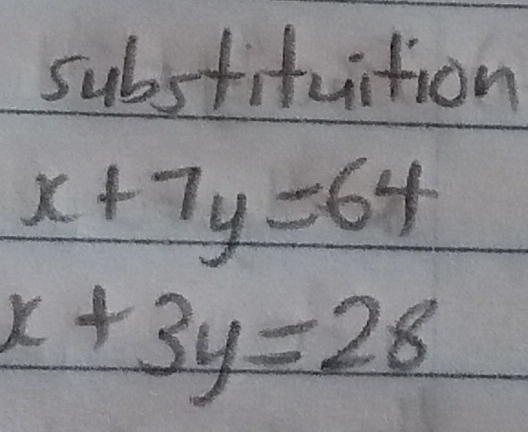 substituition
x + 7y = 64
x + 3y = 28